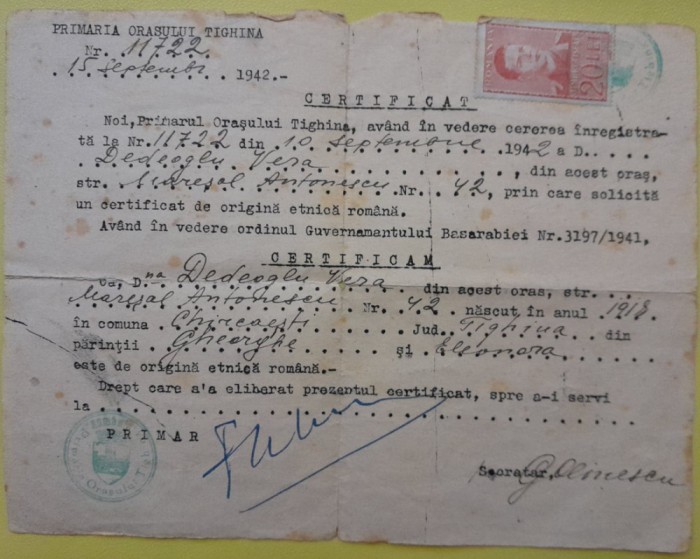 PRIMARIA ORASULUI TIGHINA
Nr. 11722
15 Septembr 1942.-
ROMANIA
20 LEI
CERTIFICAT
Noi, Primarul Orașului Tighina, având în vedere cererea înregistra-
tă la Nr. 11722 din 10 Septembrie 1942 a D.....
Dedeoglu Vera, din acest oraș,
str. Mareșal Antonescu Nr. 42, prin care solicită
un certificat de origină etnică română.
Având în vedere ordinul Guvernamantului Basarabiei Nr.3197/1941,
CERTIFICAM
Că, D na Dedeoglu Vera din acest oras, str....
Mareșal Antonescu Nr. 42 născut în anul 1918
în comuna Chircaești Jud. Tighina din
părinții Gheorghe și Eleonora
este de origină etnică română.-
Drept care s'a eliberat prezentul certificat, spre a-i servi
la
PRIMAR
Secretar,
Orasului